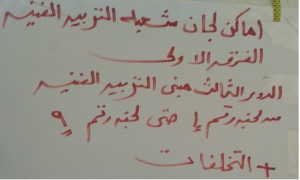 اماكن لجان شعبة التربيه الفنيه
الفرقه الاولى
الدور الثالث مبنى التربيه الفنيه
من لجنه رقم ١ حتى لجنه رقم ٩
+ التخلفات